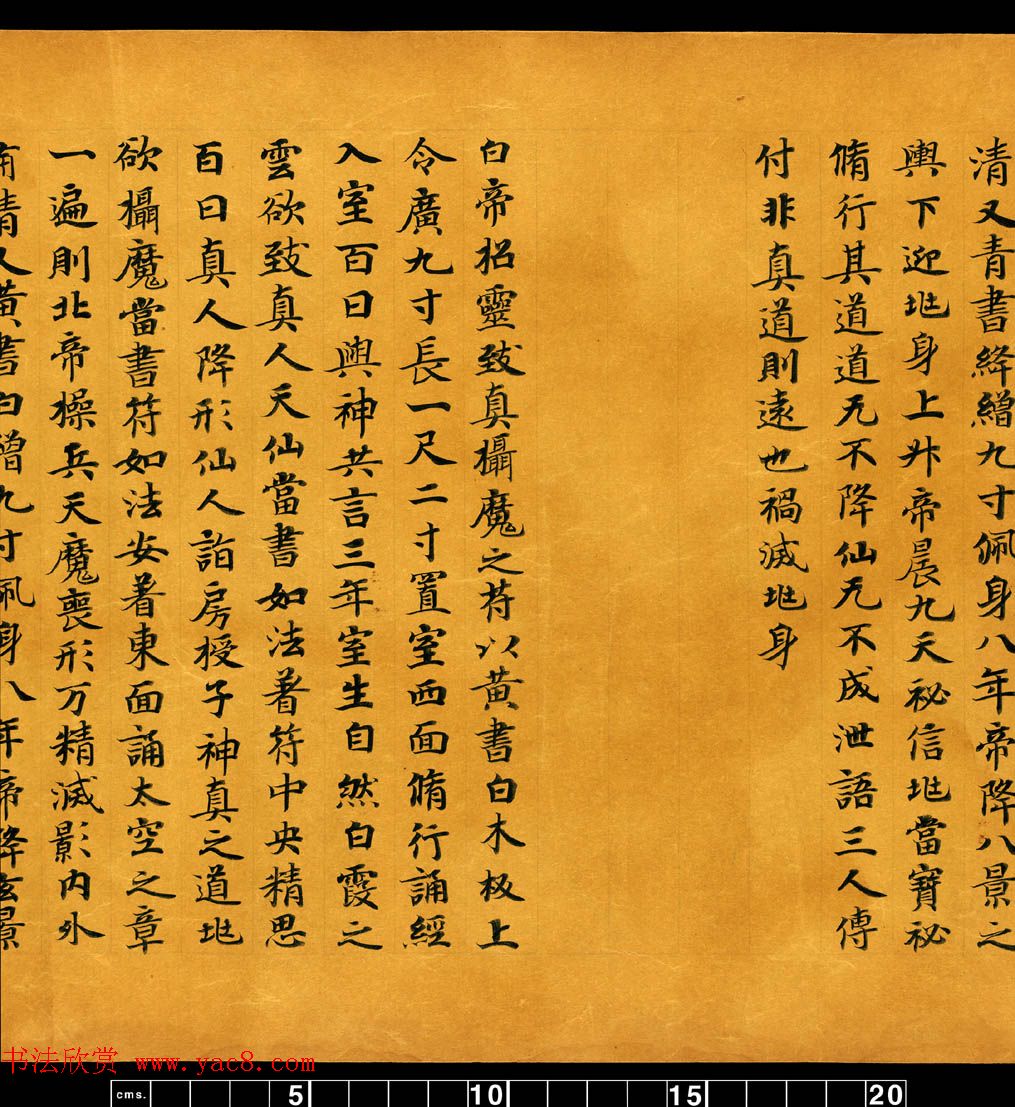 清又青書絳繒九寸佩身八年帝降八景之
輿下迎兆身上升帝晨九天祕信兆當寶祕
脩行其道道无不降仙无不成泄語三人傳
付非真道則遠也禍滅兆身
白帝招靈致真攝魔之苻以黃書白木板上
令廣九寸長一尺二寸置室西面脩行誦經
入室百日與神共言三年室生自然白霞之
雲欲致真人天仙當書如法著苻中央精思
百日真人降形仙人詣房授子神真之道兆
欲攝魔當書苻如法安著東面誦太空之章
一遍則北帝操兵天魔喪形万精滅影內外
清又黃書白繒九寸佩身八年帝降玄景
书法欣赏 www.yac8.com
cms. 5 10 15 20